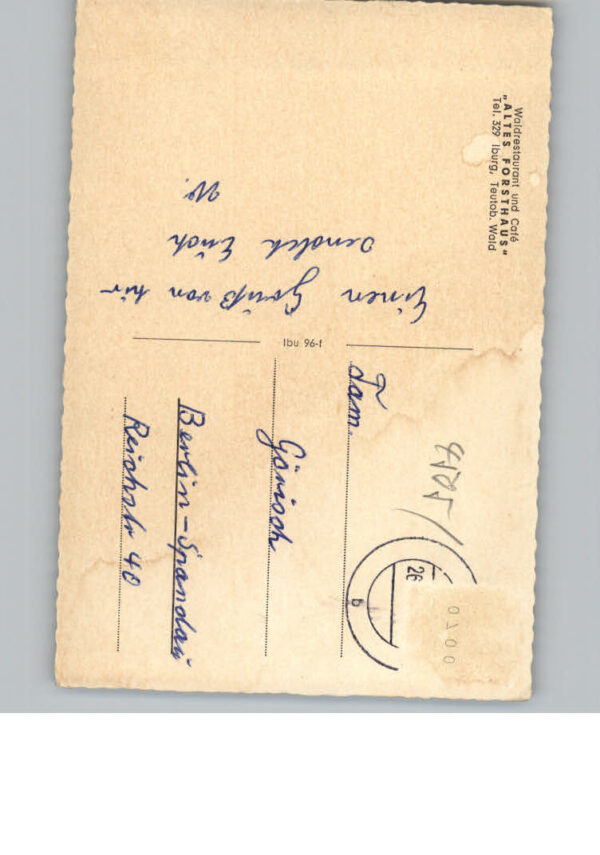 Waldrestaurant und Café
„ALTES FORSTHAUS"
Tel. 329 Iburg, Teutob. Wald
Einen Gruß von hir
sendet Erich
W.
Ibu 96-f
Fam.
Görisch
Berlin-Spandau
Reichstr 40
26
b
0700